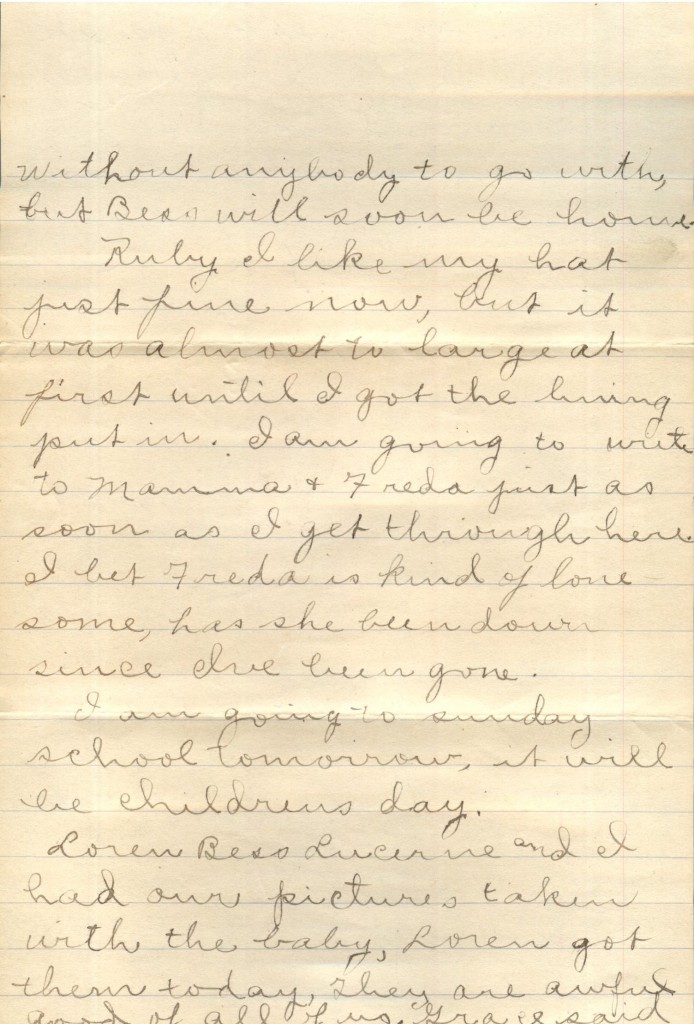 without anybody to go with,
but Bess will soon be home.
Ruby I like my hat
just fine now, but it
was almost to large at
first until I got the lining
put in. I am going to write
to Mamma & Freda just as
soon as I get through here.
I bet Freda is kind of lone
some, has she been down
since I've been gone.
I am going to sunday
school tomorrow, it will
be childrens day.
Loren Bess Lucerne and I
had our pictures taken
with the baby, Loren got
them today, They are awful
good of all of us, Grace said